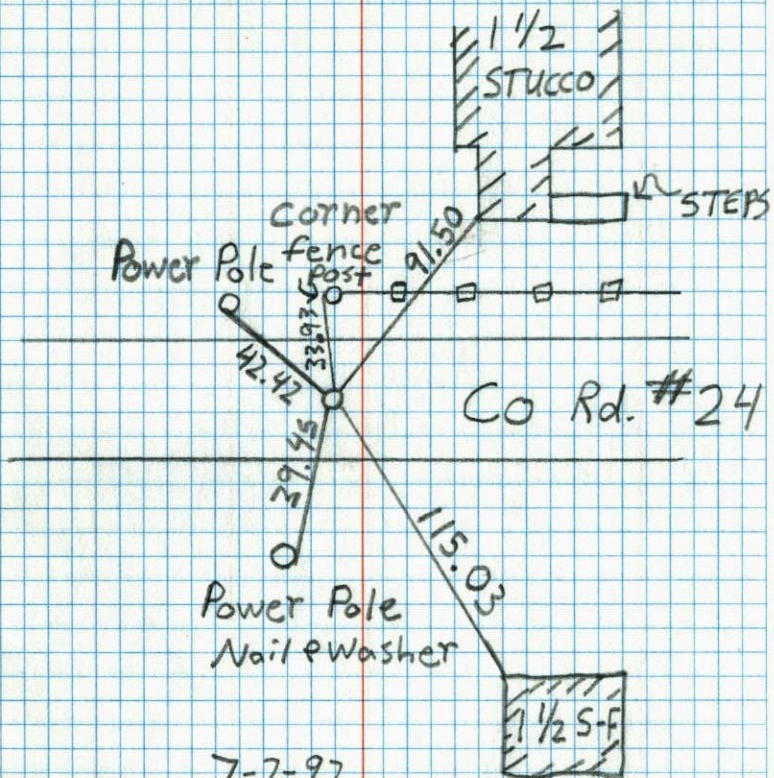 1 1/2
STUCCO
STEPS
Corner
fence
post
Power Pole
91.50
33.93
42.42
Co Rd. #24
39.45
115.03
Power Pole
Nail & Washer
1 1/2 S-F
7-7-97